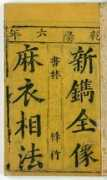 六年
新鐫全像
書林 梓行
麻衣相法